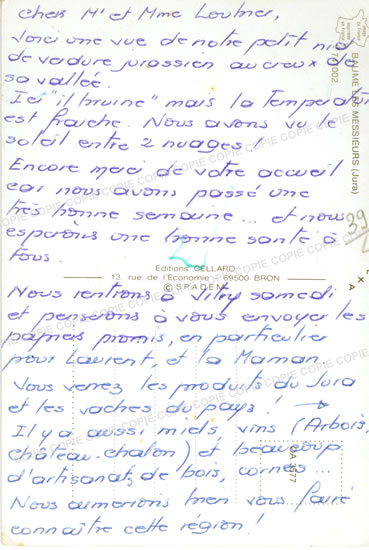 Chers Mr et Mme Loubner,
voici une vue de notre petit nid
de verdure jurassien au creux de
sa vallée.
Ici "il bruine" mais la température
est fraîche. Nous avons vu le
soleil entre 2 nuages !
Encore merci de votre accueil
car nous avons passé une
très bonne semaine... et nous
espérons une bonne santé à
tous.
Editions CELLARD
13, rue de l'Economie - 69500 BRON
© S.P.A.D.E.M.
Nous rentrons à Vitry samedi
et pensons à vous envoyer les
papiers promis, en particulier
pour Laurent, et la Maman.
Vous verrez les produits du Jura
et les vaches du pays ! →
Il y a aussi miels, vins (Arbois,
château-chalon) et beaucoup
d'artisanats de bois, cornes...
Nous aimerions bien vous faire
connaître cette région !
BAUME LES MESSIEURS (Jura)
39
COPIE COPIE COPIE COPIE